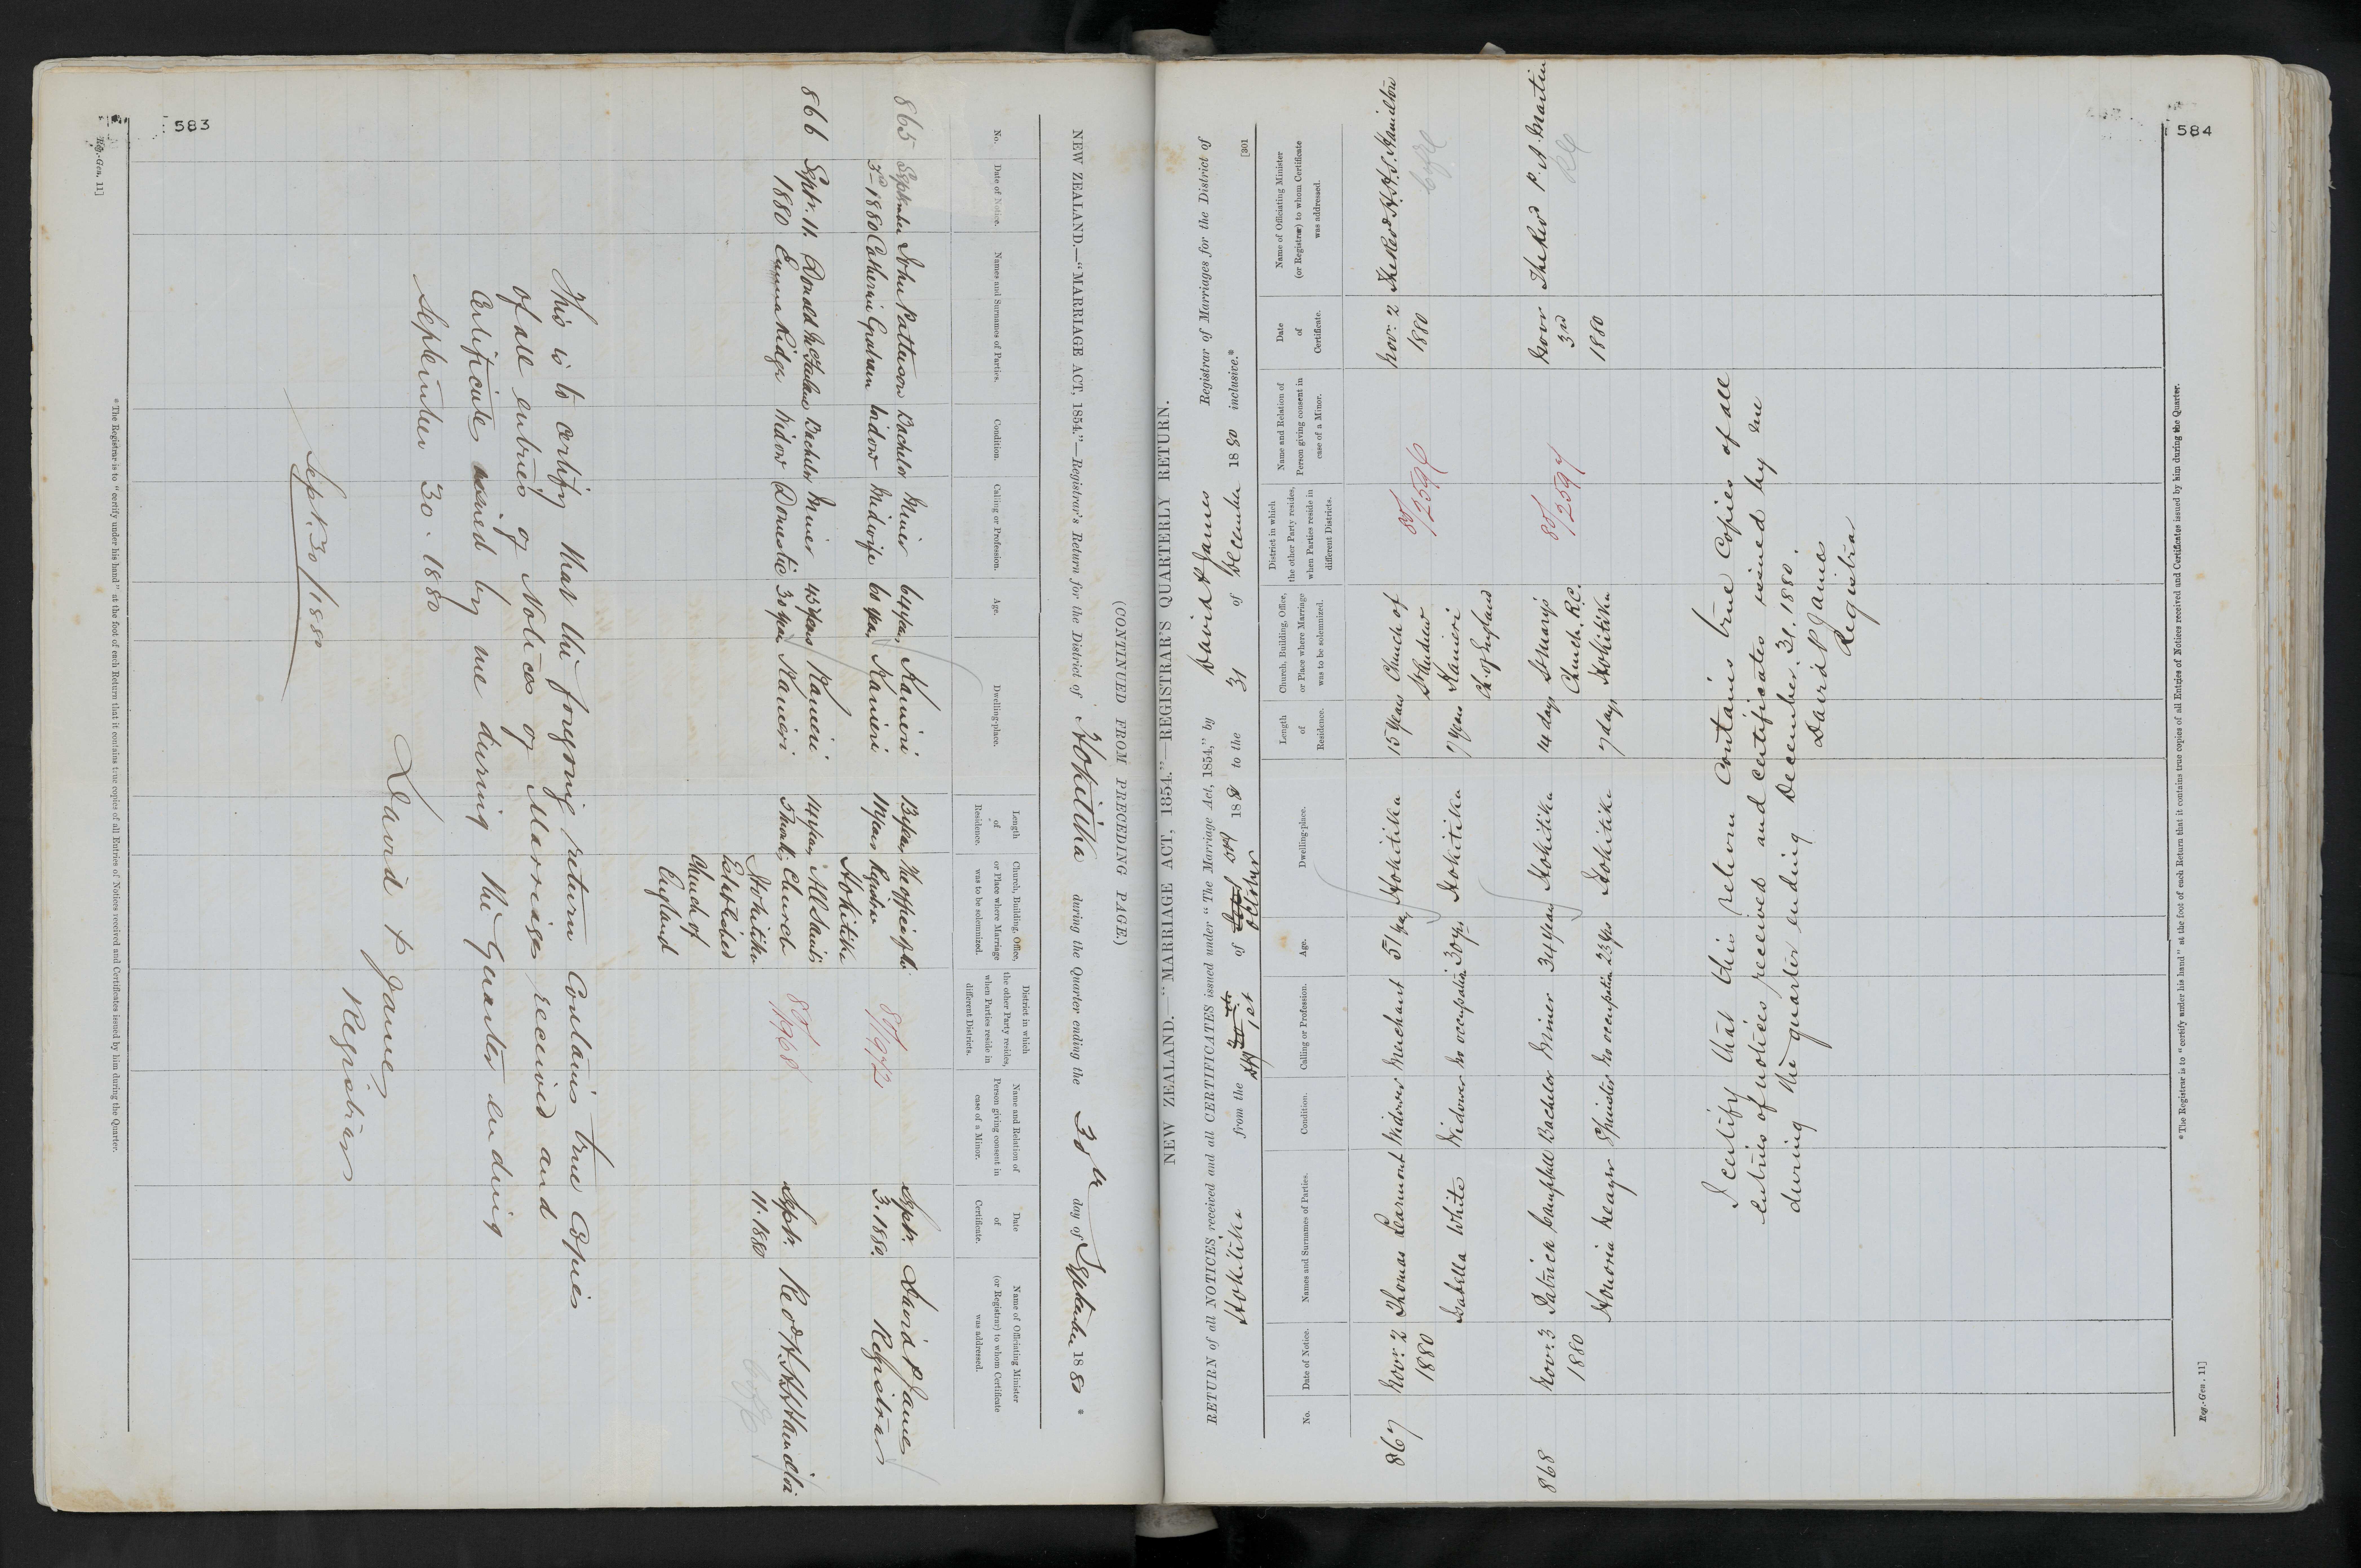 583
Reg.-Gen. 11]
NEW ZEALAND.—"MARRIAGE ACT, 1854."—Registrar's Return for the District of Hokitika during the Quarter ending the 30th day of September 1880 *
(CONTINUED FROM PRECEDING PAGE.)
No.
Date of Notice.
Names and Surnames of Parties.
Condition.
Calling or Profession.
Age.
Dwelling-place.
Length
of
Residence.
Church, Building, Office,
or Place where Marriage
was to be solemnized.
District in which
the other Party resides,
when Parties reside in
different Districts.
Name and Relation of
Person giving consent in
case of a Minor.
Date
of
Certificate.
Name of Officiating Minister
(or Registrar) to whom Certificate
was addressed.
865 September John Patterson Bachelor Miner 64 years Kanieri The office of the Septr. David P James
3rd 1880 Catherine Graham Widow Midwife 60 years Kanieri 11 years Registrar 3. 1880. Registrar
Hokitika
80/1972
866 Septr. 11. Donald McFarlane Bachelor Miner 45 years Kanieri 14 years All Saints Septr. Revd H.H.S Hamilton
1880 Emma Ridge Widow Domestic 30 years Kanieri Church 11. 1880
Hokitika
Established
Church of
England
80/1968
C of E
This is to certify that the foregoing return Contains true Copies
of all entries of Notices of Marriage received and
Certificates issued by me during the Quarter ending
September 30. 1880
David P James
Registrar
Sept. 30/1880
* The Registrar is to "certify under his hand" at the foot of each Return that it contains true copies of all Entries of Notices received and Certificates issued by him during the Quarter.
584
[301
NEW ZEALAND.—"MARRIAGE ACT, 1854."—REGISTRAR'S QUARTERLY RETURN.
RETURN of all NOTICES received and all CERTIFICATES issued under "The Marriage Act, 1854," by David P James Registrar of Marriages for the District of
Hokitika from the 1st of October 188 to the 31 of December 1880 inclusive.*
No.
Date of Notice.
Names and Surnames of Parties.
Condition.
Calling or Profession.
Age.
Dwelling-place.
Length
of
Residence.
Church, Building, Office,
or Place where Marriage
was to be solemnized.
District in which
the other Party resides,
when Parties reside in
different Districts.
Name and Relation of
Person giving consent in
case of a Minor.
Date
of
Certificate.
Name of Officiating Minister
(or Registrar) to whom Certificate
was addressed.
867 Novr. 2 Thomas Learmont Widower Merchant 51 yrs Hokitika 15 years Church of Novr. 2 The Revd H.H.S. Hamilton
1880 St Andrew 1880 C of E
Isabella White Widow No occupation 30 yrs Hokitika 7 years Kanieri
Ch. of England
80/2596
868 Novr. 3 Patrick Bachelor Miner 34 years Hokitika 14 days St Mary's Novr The Revd P. A. Martin
1880 Church. R.C. 3rd RC
Honoria Spinster No occupation 23 yrs Hokitika 7 days Hokitika 1880
80/2597
I certify that this return Contains true Copies of all
entries of notices received and Certificates issued by me
during the quarter ending December. 31. 1880.
David P James
Registrar
* The Registrar is to "certify under his hand" at the foot of each Return that it contains true copies of all Entries of Notices received and Certificates issued by him during the Quarter.
Reg.-Gen. 11]